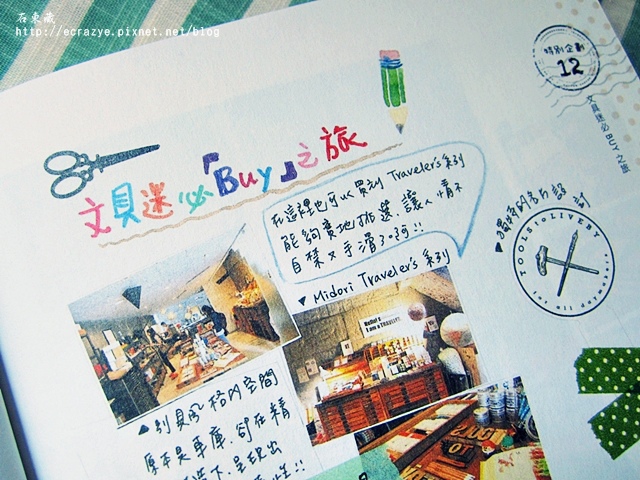 石東藏
http://ecrazye.pixnet.net/blog
特別企劃
12
文具迷必BUY之旅
文具迷必「Buy」之旅
在這裡也可以買到 Traveler's系列
能夠賣地挑選.讓人情不
自禁又手滑了啊!!
▼Midori Traveler's系列
Hello!
I am a TRAVELER.
獨特的名片設計
TOOLS to LIVEBY
▲別具風格的空間
原本是車庫.卻在精
下.呈現出
性!!